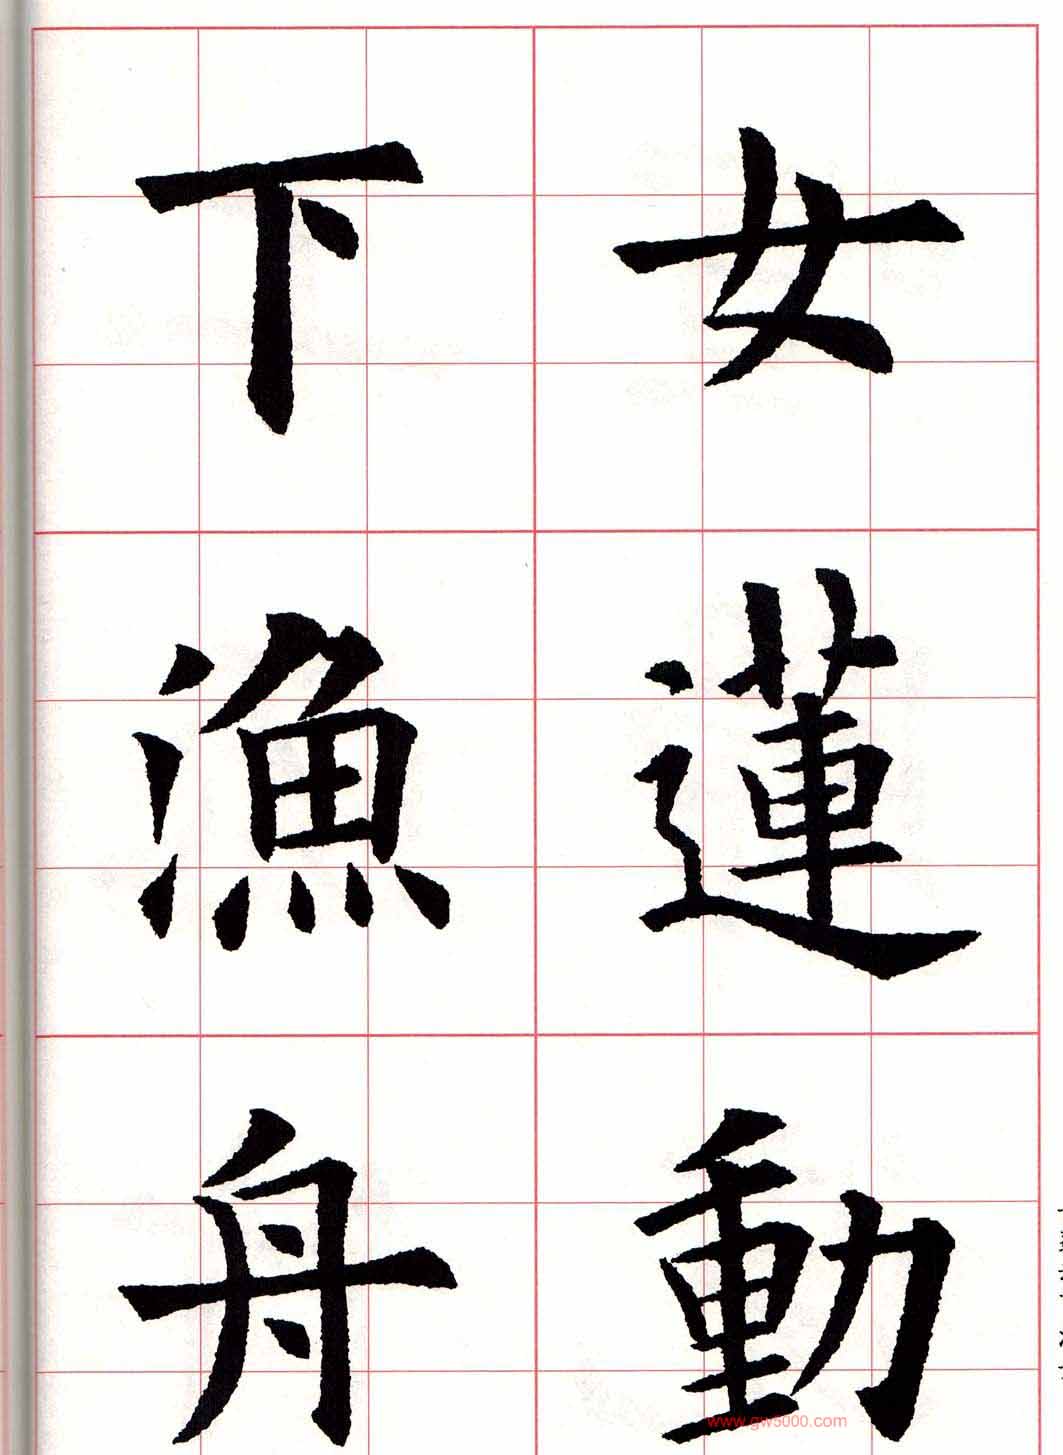 女蓮動
下漁舟
www.gw5000.com